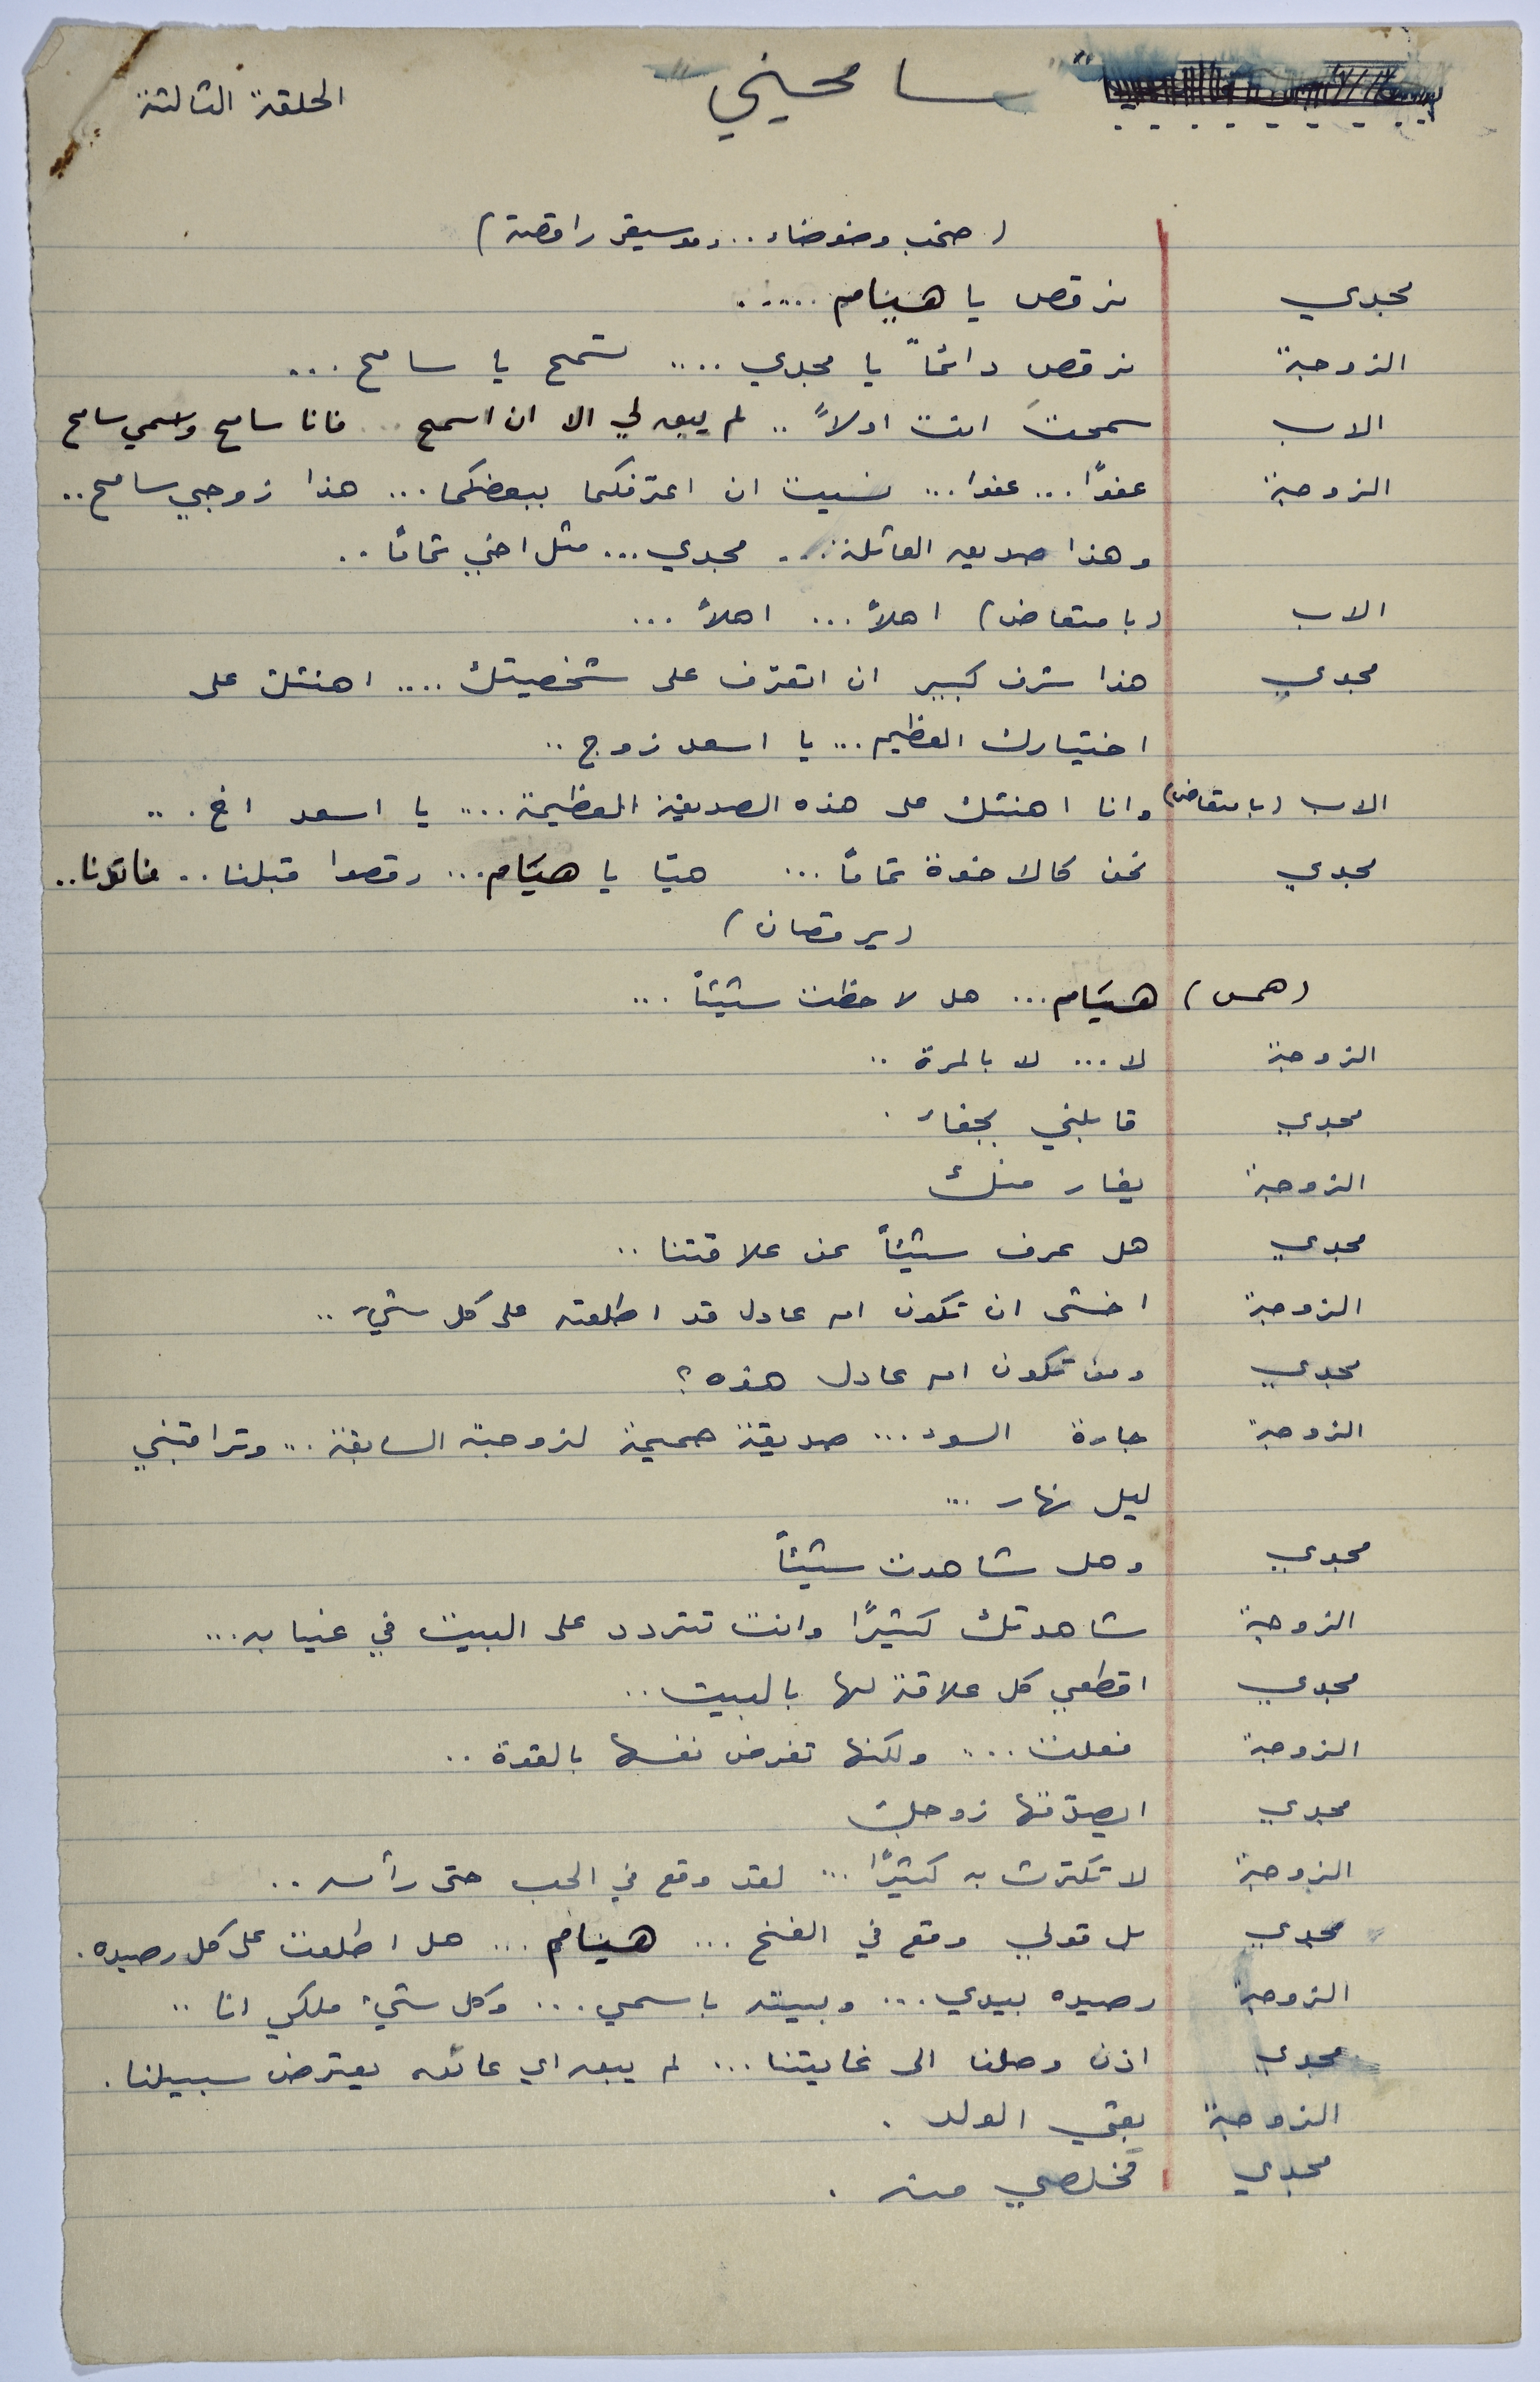 " سامحيني " الحلقة الثالثة
( صخب وضوضاء .. وموسيقى راقصة )
مجدي نرقص يا هيام .....
الزوجة نرقص دائماً يا مجدي .... تسمح يا سامح ...
الاب سمحتَ انت اولاً .. لم يبق لي الا ان اسمح .. فانا سامح واسمي سامح
الزوجة عفوًا ... عفوا ... نسيت ان اعرّفكما ببعضكما ... هذا زوجي سامح ..
وهذا صديق العائلة ... مجدي ... مثل اخي تمامًا ..
الاب ( بامتعاض ) اهلاً ... اهلاً ...
مجدي هذا شرف كبير ان اتعرّف على شخصيتك .... اهنئك على
اختيارك العظيم ... يا اسعد زوج ..
الاب ( بامتعاض ) وانا اهنئك على هذه الصديقة العظيمة .... يا اسعد اخ . ..
مجدي نحن كالاخوة تمامًا ... هيّا يا هيَام ... رقصوا قبلنا ..
( يرقصان )
( همس ) هيَام ... هل لاحظت شيئاً ...
الزوجة لا ... لا بالمرة ..
مجدي قابلني بجفاء .
الزوجة يغار منك
مجدي هل عرف شيئاً عن علاقتنا ..
الزوجة اخشى ان تكون ام عادل قد اطلعته على كل شيء ..
مجدي ومن تكون ام عادل هذه ؟
الزوجة جارة السوء ... صديقة حميمة لزوجته السابقة ... وتراقبني
ليل نهار ...
مجدي وهل شاهدت شيئاً
الزوجة شاهدتك كثيرًا وانت تتردد على البيت في غيابه ...
مجدي اقطعي كل علاقة لها بالبيت ..
الزوجة فعلت .... ولكنها تفرض نفسها بالقوة ..
مجدي ايصدّقها زوجك
الزوجة لا تكترث به كثيرًا ... لقد وقع في الحب حتى رأسه ..
مجدي بل قولي وقع في الفخ ... هيام ... هل اطلعت على كل رصيده .
الزوجة رصيده بيدي ... وبيته باسمي ... وكل شيء ملكي انا ..
مجدي اذن وصلنا الى غايتنا ... لم يبق اي عائق يعترض سبيلنا .
الزوجة بقي الولد .
مجدي تخلصي منه .